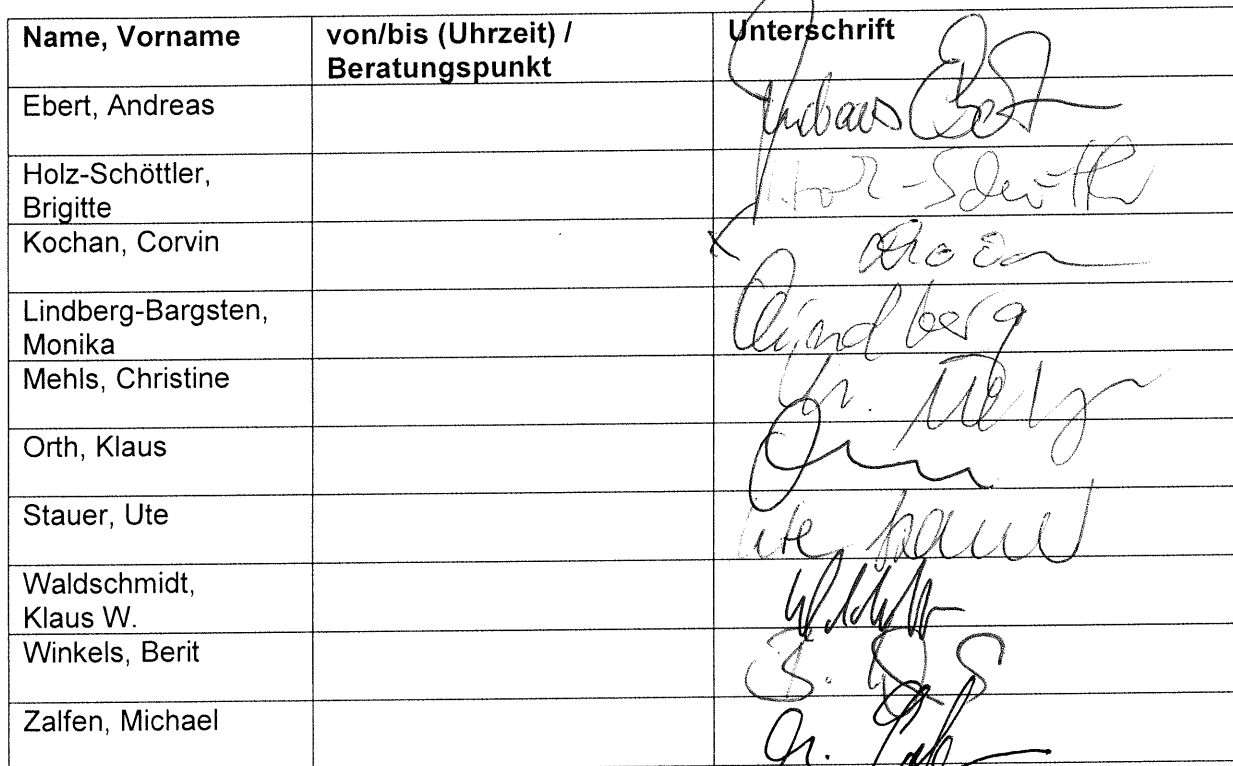 Name, Vorname
von/bis (Uhrzeit) /
Beratungspunkt
Unterschrift
Ebert, Andreas
Andreas Ebert
Holz-Schöttler,
Brigitte
Holz-Schöttler
Kochan, Corvin
x
Lindberg-Bargsten,
Monika
Lindberg
Mehls, Christine
Orth, Klaus
Stauer, Ute
Ute Stauer
Waldschmidt,
Klaus W.
Winkels, Berit
Zalfen, Michael